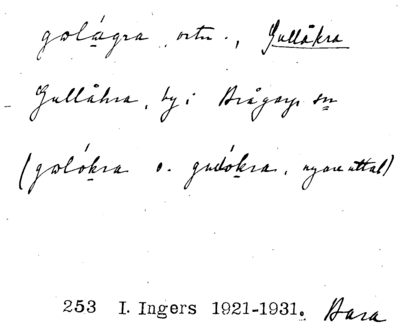 golágra, ortn., Gullåkra
Gullåkra, by i Brågarps sn
(golókra o. gulókra, nyare uttal)
253 I. Ingers 1921-1931. Bara